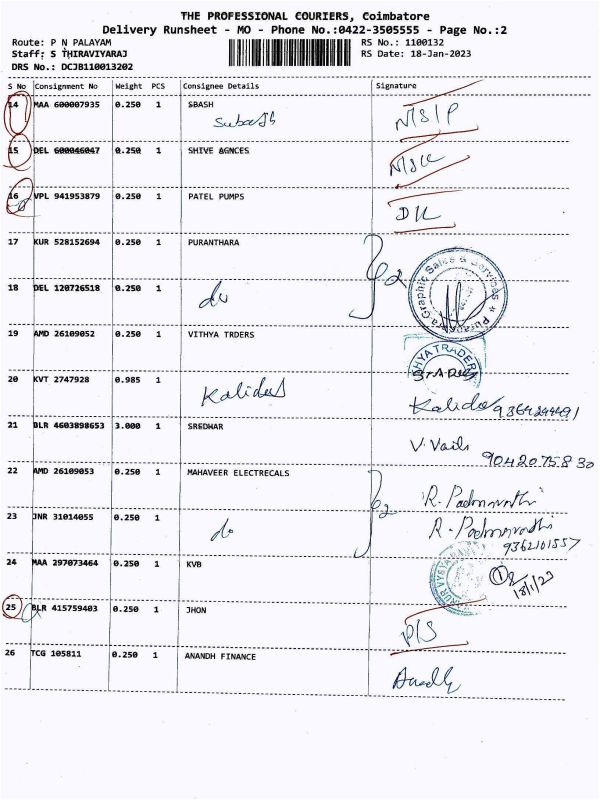 THE PROFESSIONAL COURIERS, Coimbatore
Delivery Runsheet - MO - Phone No.:0422-3505555 - Page No.:2
Route: P N PALAYAM RS No.: 1100132
Staff: S THIRAVIYARAJ RS Date: 18-Jan-2023
DRS No.: DCJB110013202
S No Consignment No Weight PCS Consignee Details Signature
14 MAA 600007935 0.250 1 SBASH
Subash N/S/P
15 DEL 600046047 0.250 1 SHIVE AGNCES
N/S/L
16 VPL 941953879 0.250 1 PATEL PUMPS
D/L
17 KUR 528152694 0.250 1 PURANTHARA
2
18 DEL 120726518 0.250 1
do
Graphic Sales & Services
19 AMD 26109052 0.250 1 VITHYA TRDERS
HYA TRADERS
20 KVT 2747928 0.985 1
Kalidas Kalidas 9364244491
21 BLR 4603898653 3.000 1 SREDHAR
V. Vaili
9042075830
22 AMD 26109053 0.250 1 MAHAVEER ELECTRECALS
2 R. Padmavathi
23 JNR 31014055 0.250 1
do R. Padmavathi
9362101557
24 MAA 297073464 0.250 1 KVB
18/1/23
25 BLR 415759403 0.250 1 JHON
P/S
26 TCG 105811 0.250 1 ANANDH FINANCE